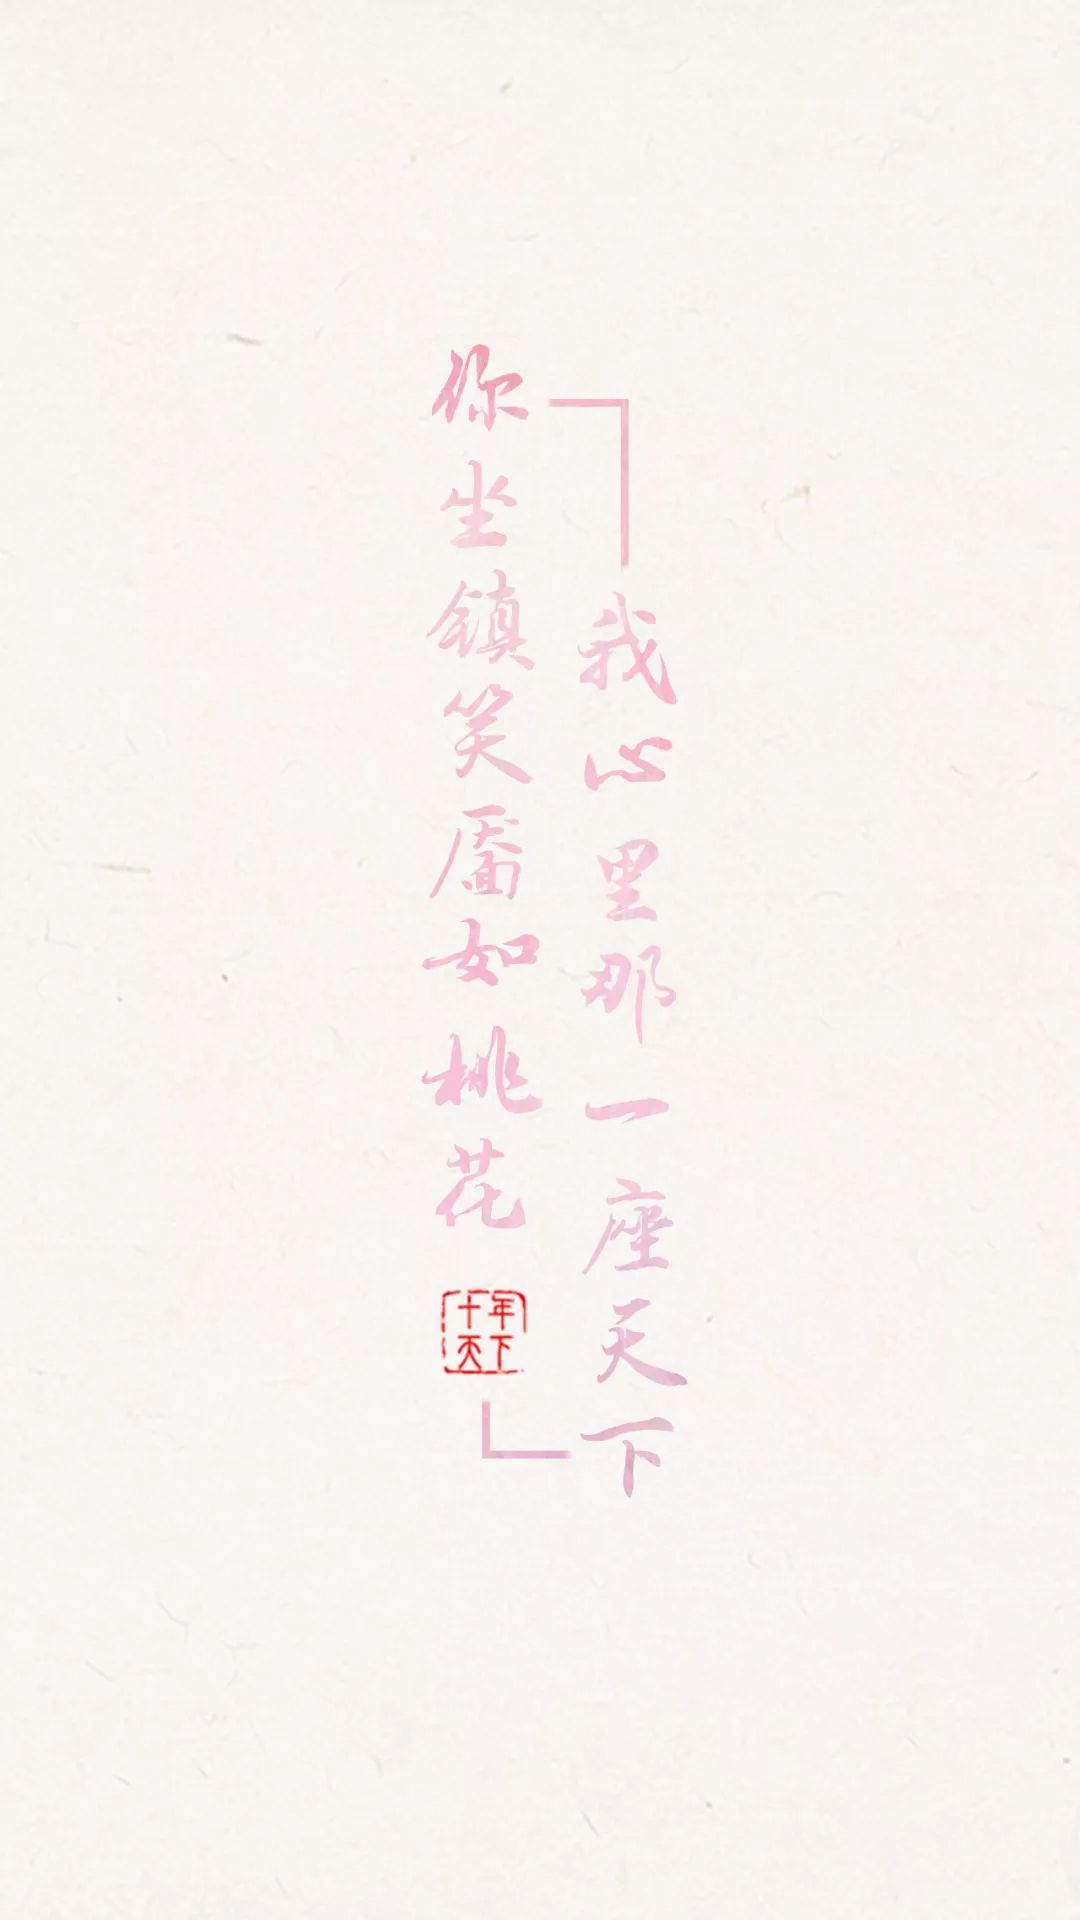 我心里那一座天下
你坐镇笑靥如桃花
十年
天下